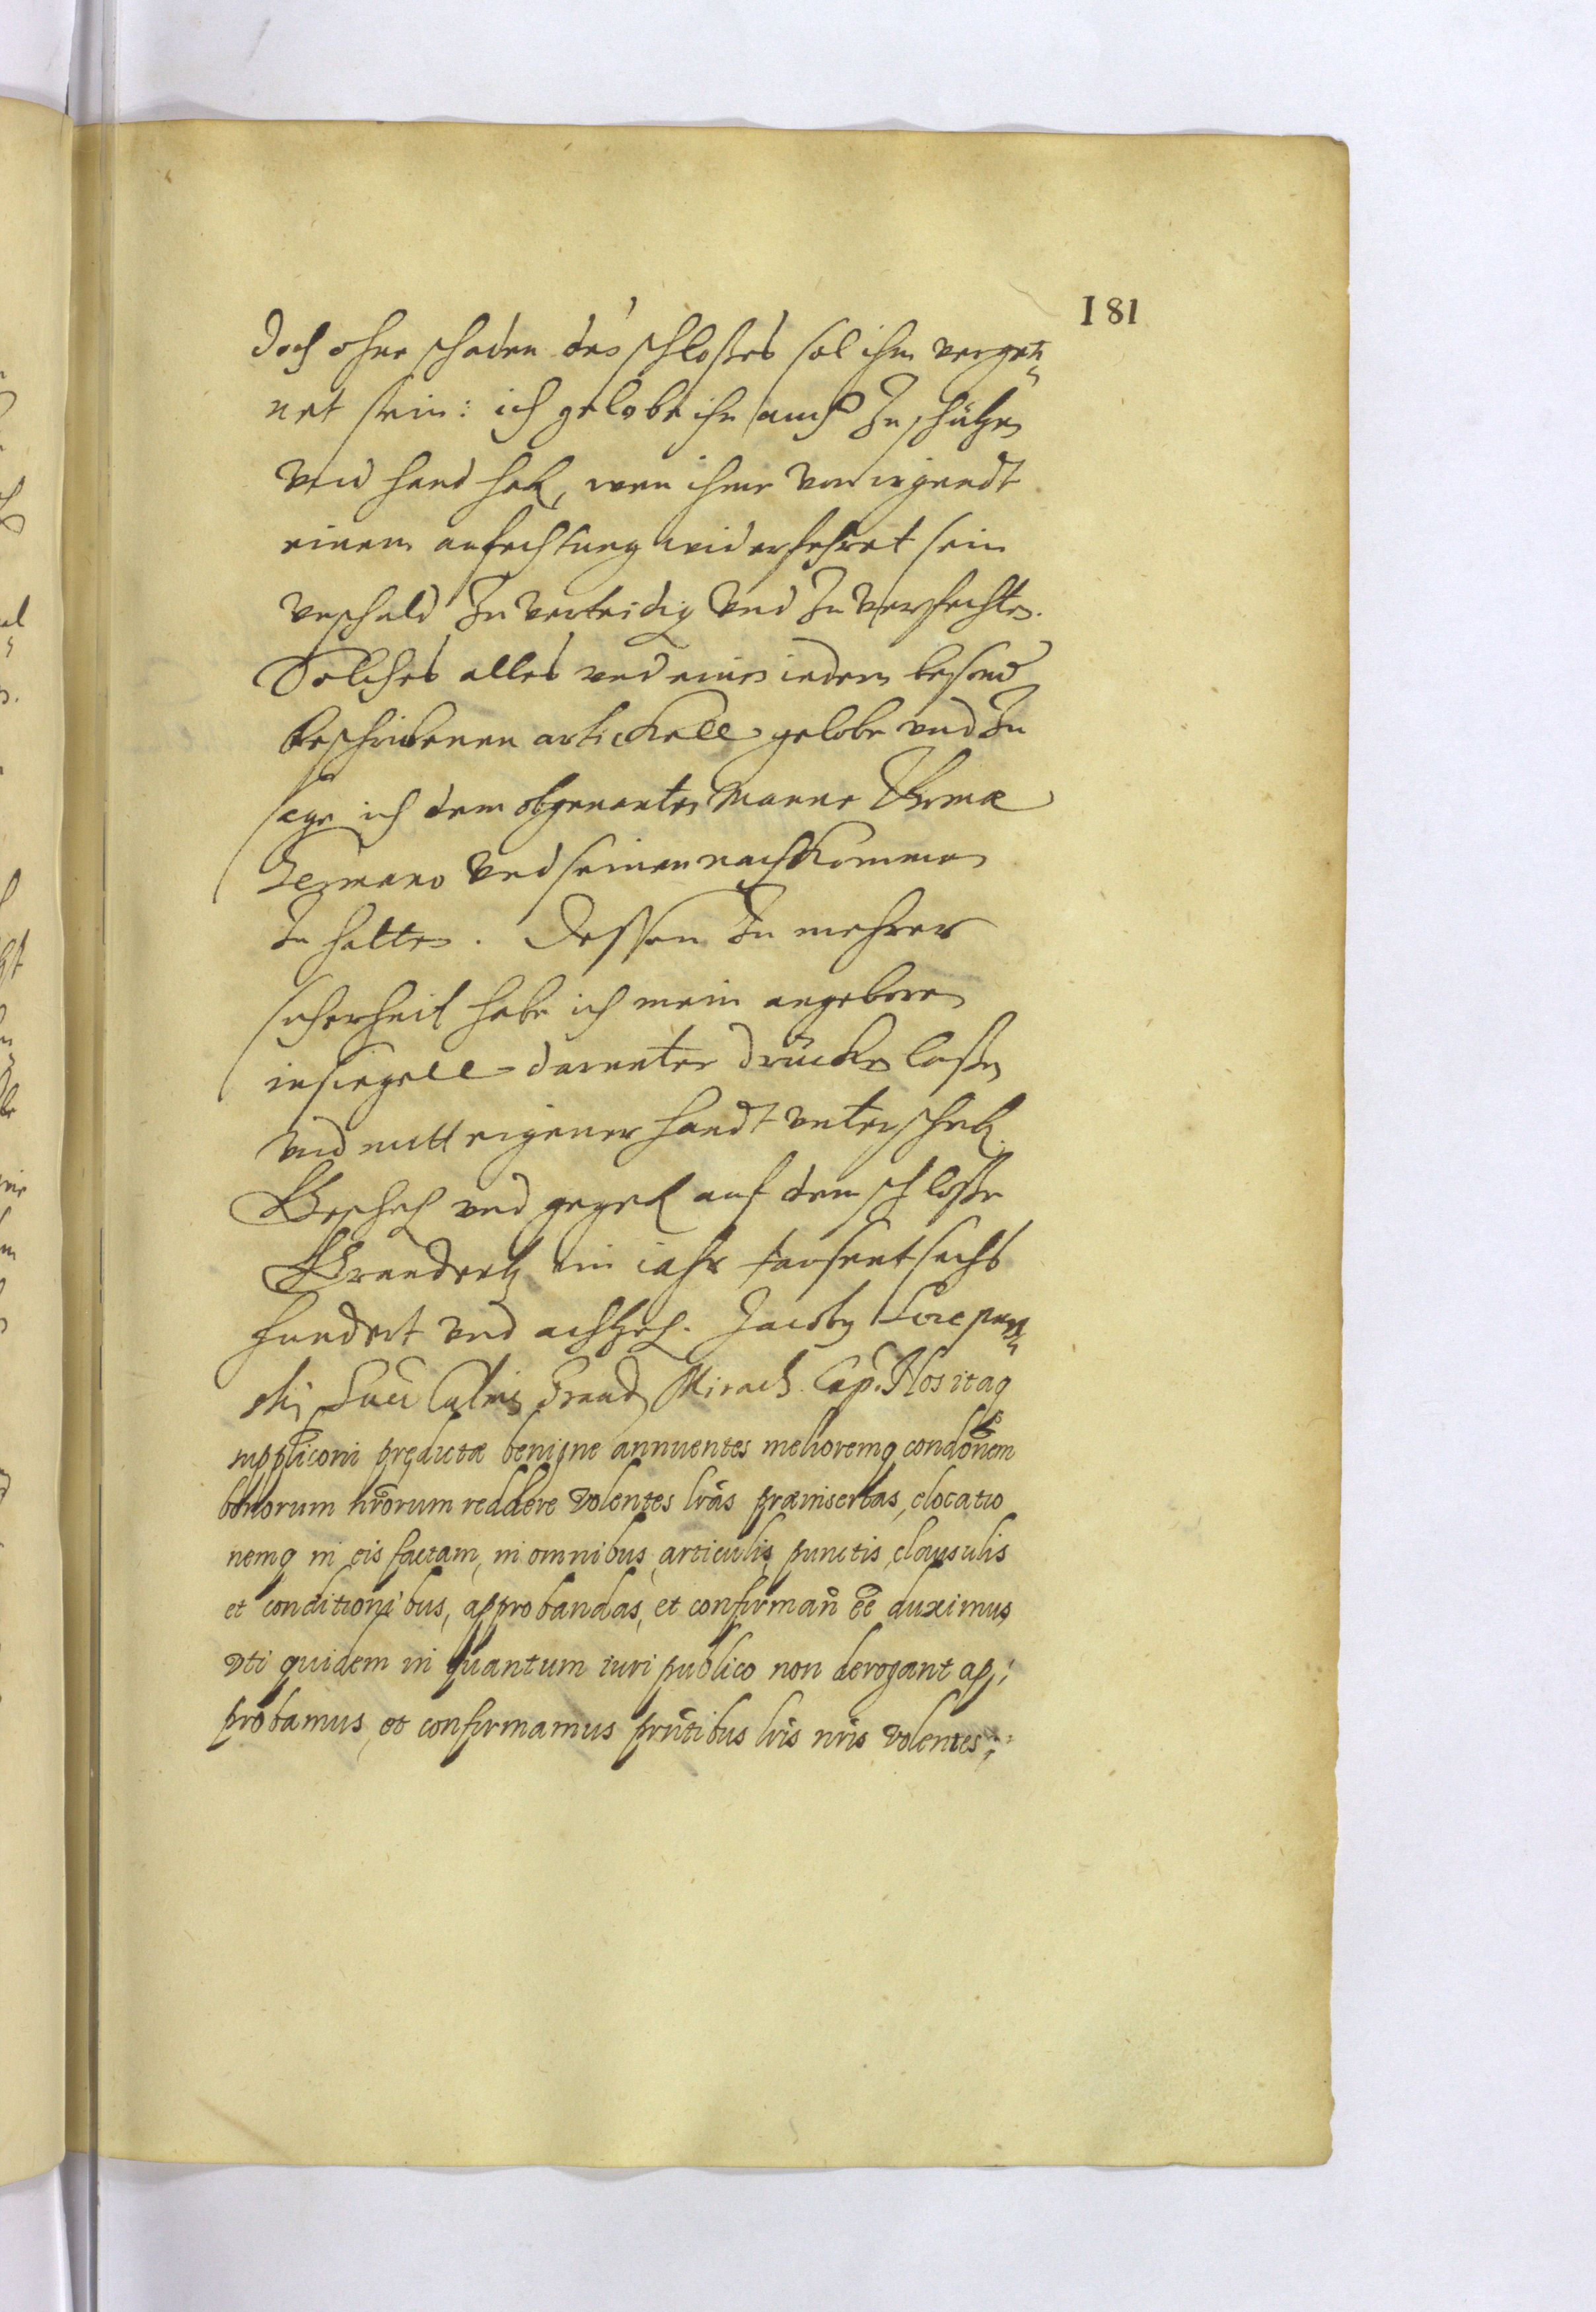 181
doch ohne schaden des schloßes sol ihm vergön„
net sein: ich gelobe ihn auch zu schützen
vnd hand hab, wen ihme von irgendt
einem anfechtung widerfehret sein
vnschuld zu verteidig vnd zu verfechten.
Solches alles vnd einen iedern besond
beschribenen artickell gelobe vnd zu
sage ich dem obgenanten Manne
Germano vnd seinen nachkommen
zu halten. Dessen zu mehrer
sicherheit habe ich mein angeboren
insiegell darunter drücken laßen
vnd mitt eigener handt vnterschrib.
Gescheh vnd gegeb auf dem schloße
Graudentz im iahr tausent sechs
hundert vnd achtzeh. Jacoby Szczepan„
skÿ Succ Culmen Graud Mirach. Cap. Nos itaq
suppliconi prędictæ benigne annuentes melioremq condonem
bonorum nrorum reddere volentes lras præinsertas, elocatio
nemq in eis factam, in omnibus, articulis, punctis, clausulis
et conditionibus, approbandas, et confirman ee duximus,
vti quidem in quantum iuri publico non derogant ap;
probamus, et confirmamus prntibus lris nris volentes;